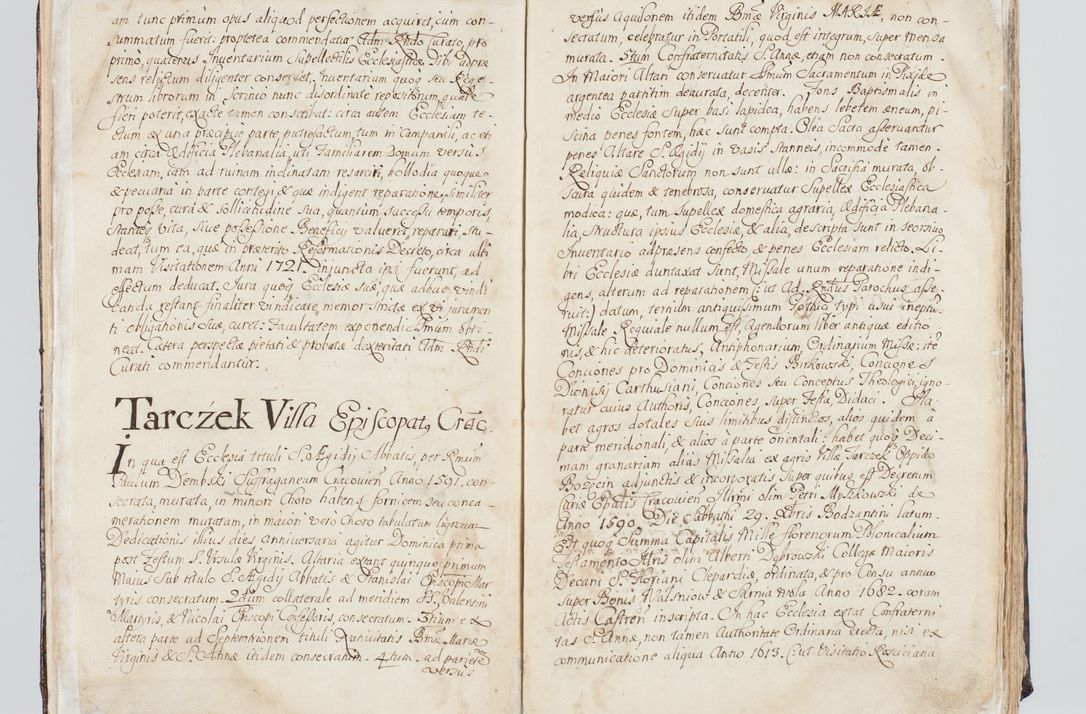 am tunc primum opus aliquod perfectionem acquiret, cum con-
summatum fuerit: propterea commendatur Adm. Rndo Curato, pro
primo, quatenus Inventarium Supellectilis Ecclesiasticæ sibi ad præ-
sens relictum diligenter conservet, Inventarium quoq; seu Rege-
strum librorum in scrinio nunc disordinate repositorum, quale
fieri poterit, exacte tamen conscribat: circa autem Ecclesiam te-
ctum ex una præcipue parte putrefactum, tum in Campanili, ac eti-
am circa Ædificia Plebanalia, uti Familiarem Domum versùs
Ecclesiam, iam ad ruinam inclinatam resarciri, Allodia quoque
& pecuaria in parte contegi & quæ indigent reparatione, similiter
pro posse, curâ & sollicitudine sua, quantum successu temporis,
stante vita, sive possessione Beneficij valuerit reparari, stu-
deat, tum ea, quæ in præterito Reformationis Decreto, circa ulti-
mam Visitationem Anni 1721. injuncta ipsi fuerunt, ad
effectum deducat. Jura quoq; Ecclesiæ suæ, quæ adhuc vindi-
canda restant finaliter vindicare, memor strictæ ex vi juramen-
ti obligationis suæ, curet: Facultatem exponendi Smum obti-
neat. Cætera perspectæ pietati & probatæ dexteritati Adm. Rndi
Curati commendantur.
Tarczek Villa Episcopat, Crac.
In qua est Ecclesia tituli S. Ægidij Abbatis, per Rmum
Paulum Dembski Suffraganeum Cracovien Anno 1591. con-
secrata, murata, in minori Choro habens fornicem seu conca-
merationem muratam, in maiori vero Choro tabulatum ligneum.
Dedicationis illius dies anniversaria agitur Dominica prima
post Festum S. Ursulæ Virginis. Altaria extant quinque: primum
Maius Sub titulo S. Ægidij Abbatis & Stanislai Episcopi Mar-
tyris consecratum. 2dum collaterale ad meridiem SS. Valentini
Martyris, & Nicolai Episcopi Confessoris, consecratum. 3tium ex
altera parte ad Septemtrionem tituli Nativitatis Bmæ Mariæ
Virginis & S. Annæ itidem consecratum. 4tum. ad parietem
versus
versus Aquilonem itidem Bmæ Virginis MARIÆ, non con-
secratum, celebratur in Portatili, quod est integrum, super Mensa
murata. 5tum Confraternitatis S. Annæ, etiam non consecratum.
In Maiori Altari conservatur Smum Sacramentum in Pixide
argentea partim deaurata, decenter. Fons Baptismalis in
medio Ecclesiæ super basi lapidea, habens lebetem æneum, pi-
scina penes fontem, hæc sunt compta. Olea Sacra asservantur
penes Altare S. Ægidij in vasis stanneis, incommode tamen.
Reliquiæ Sanctorum non sunt ullæ: in Sacristia murata, ob-
scura quidem & tenebrosa, conservatur Supellex Ecclesiastica
modica: quæ, tum Supellex domestica agraria, Ædificia Plebana-
lia, Structura ipsius Ecclesiæ, & alia, descripta sunt in seorsivo
Inventario ad præsens confecto, & penes Ecclesiam relicto. Li-
bri Ecclesiæ duntaxat sunt, Missale unum reparatione indi-
gens, alterum ad reparationem (: ut Ad. Rndus Parochus asse-
ruit:) datum, tertium antiquissimum Gothici typi usui ineptu.
Missale Requiale nullum est, Agendorum liber antiquæ editio-
nis, & hic deterioratus, Antiphonarium, Ordinarium Missæ: ite
Conciones pro Dominicis & Festis Birkowski, Conciones
Dionisij Carthusiani, Conciones seu Conceptus Theologici, igno-
ratur cuius Authoris, Conciones, super Festa Didaci. Ha-
bet agros dotales suis limitibus distinctos, alios quidem à
parte meridionali, & alios à parte orientali: habet quoq; Deci-
mam granariam alias Missalia ex agris Villæ Tarczek Oppido
Bozęcin adjunctis & incorporatis super quibus est Decretum
Curiæ Epatis Cracovien Illrmi olim Petri Myszkowski de
Anno 1590. Die Sabbathi 29. Xbris Bodzantini latum.
Est quoq; Summa Capitalis Mille florenorum Polonicalium
Testamento Illris olim Alberti Dąbrowski Collegæ Maioris
Decani S. Floriani Clepardiæ, ordinata, & pro Censu annuo
super Bonis Wasniow & Jarnia Wola Anno 1682. coram
Actis Castren inscripta. In hac Ecclesia extat Confraterni-
tas S. Annæ, non tamen Authoritate Ordinaria erecta, nisi ex
communicatione aliqua Anno 1613. (ut Visitatio